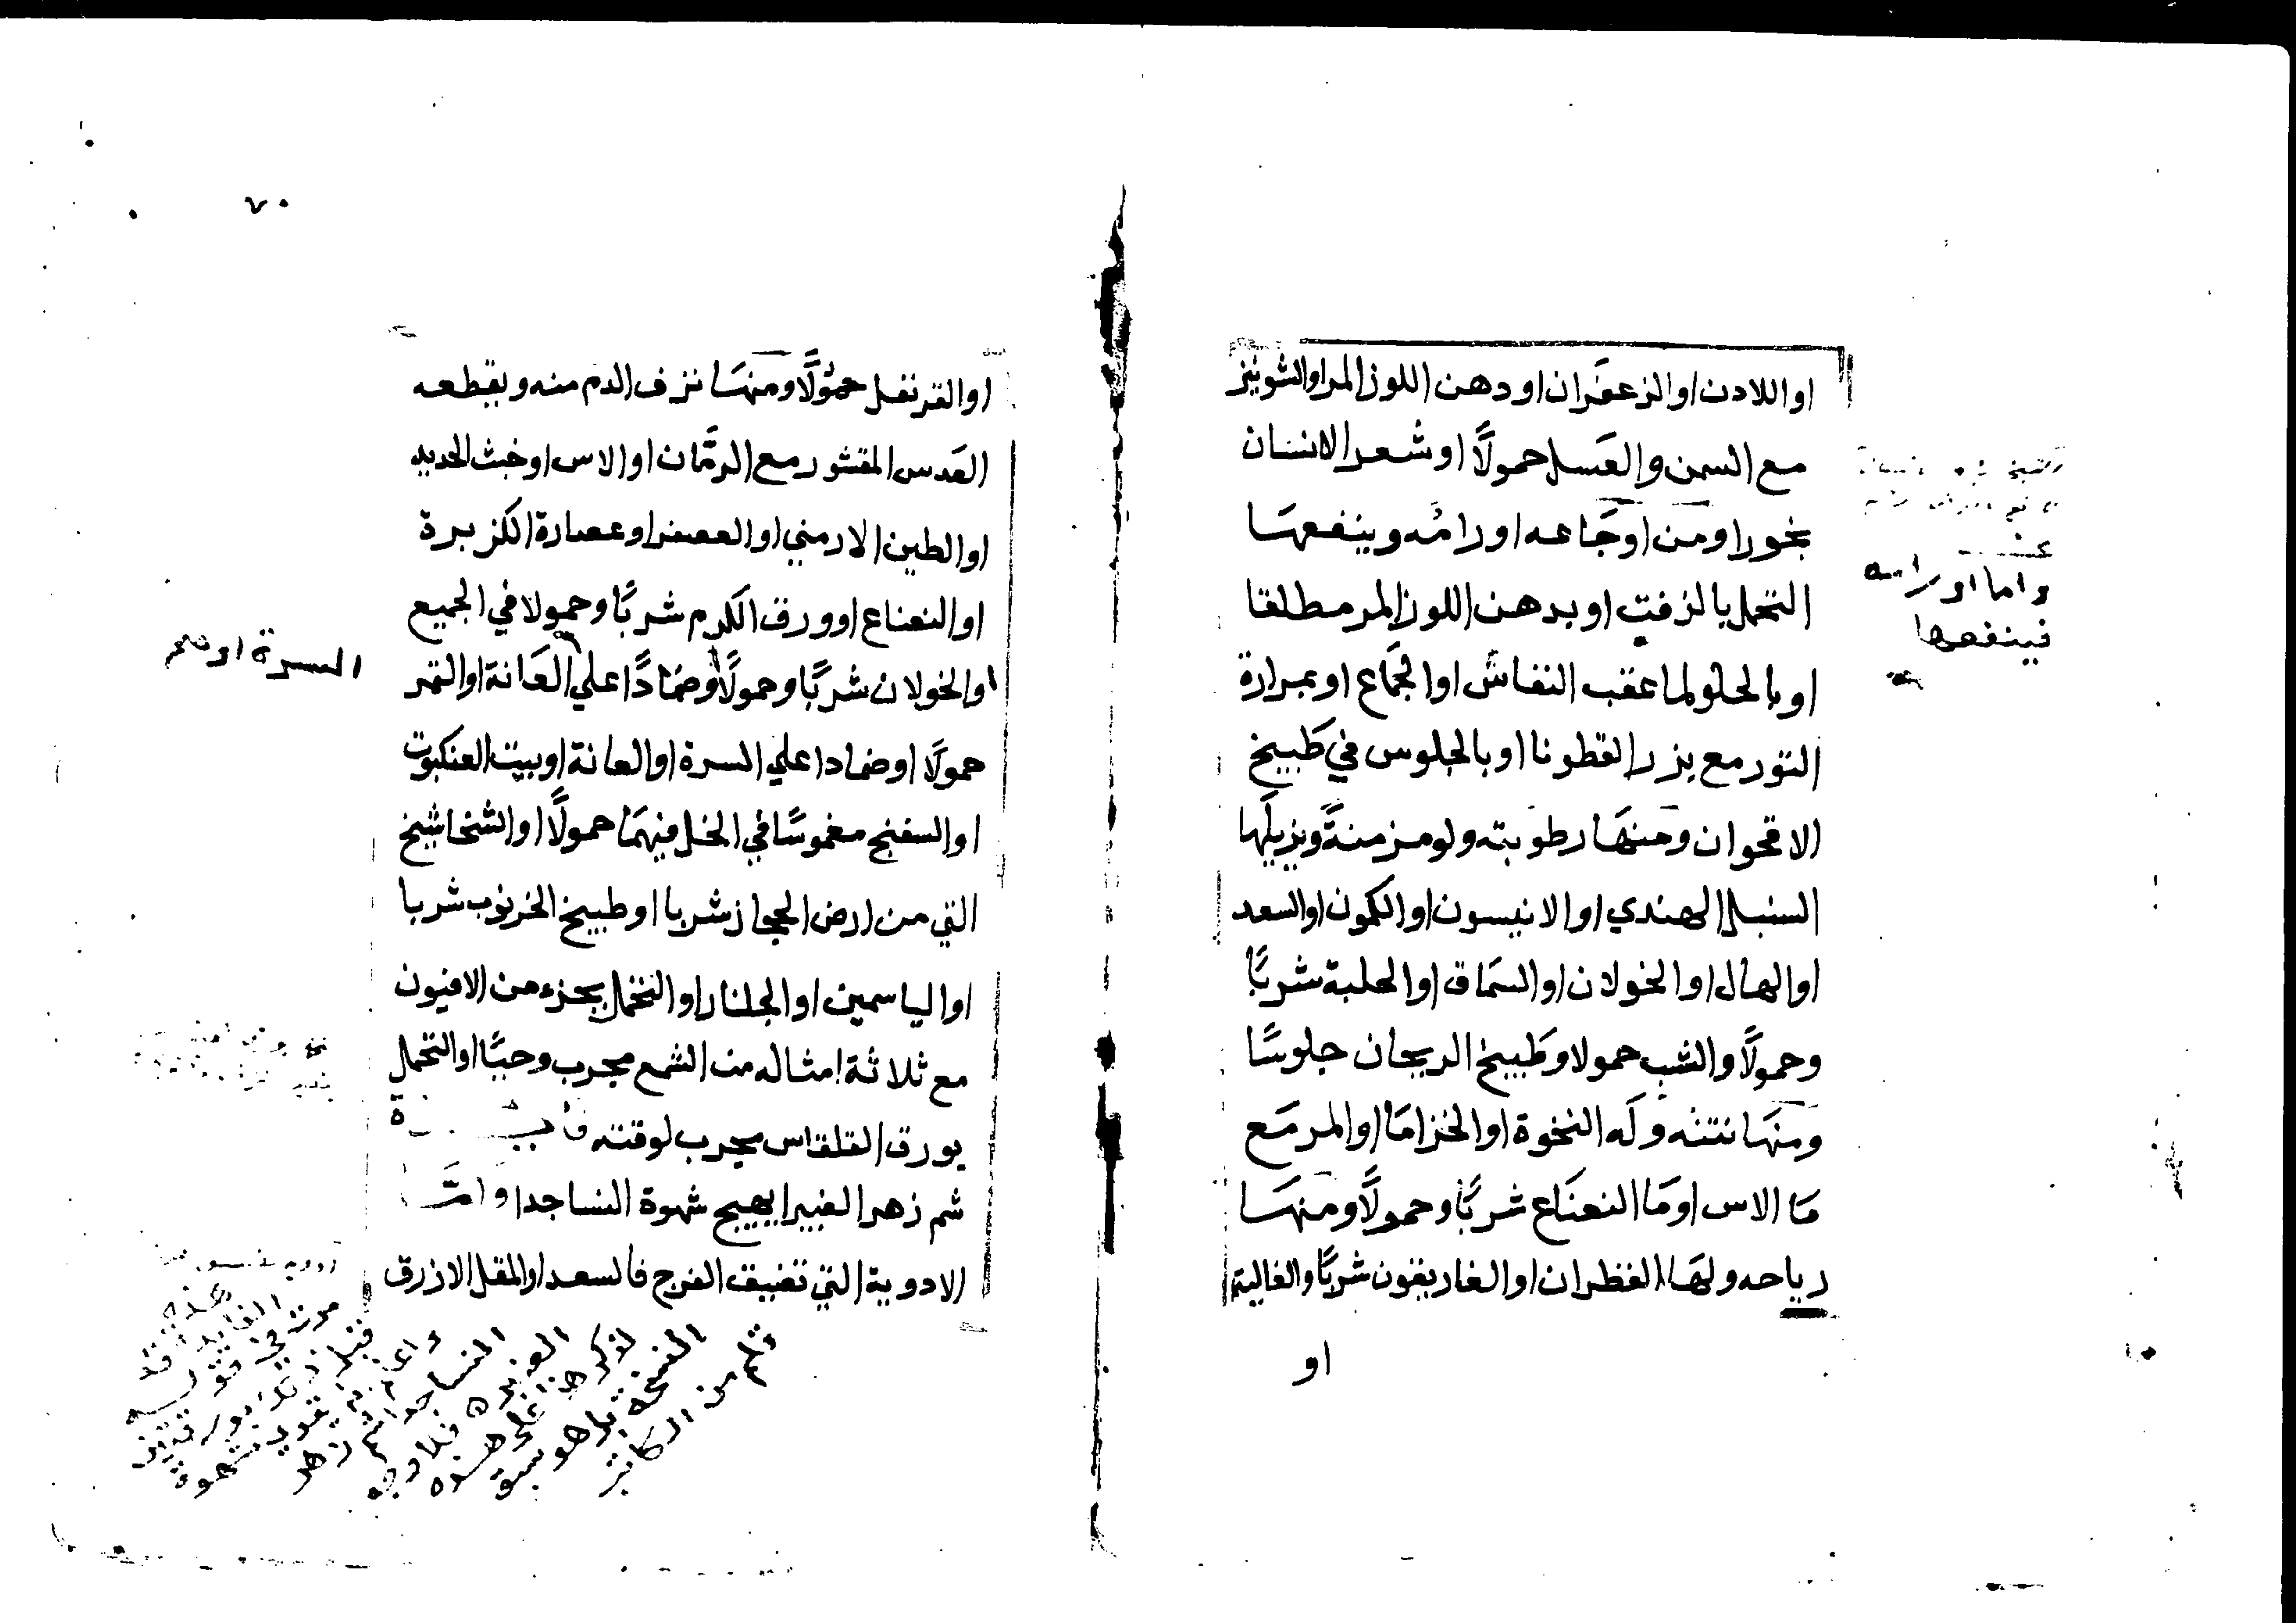 او اللادن او الزعفران او دهن اللوز المر او الشونيز
مع السمن والعسل حمولًا او شعر الانسان
بخورا ومن اوجاعه اورامه وينفعها
التحمل بالزفت او بدهن اللوز المر مطلقا
او بالحلو لما عقب النفاس او الجماع او بمرارة
الثور مع بزر القطونا او بالجلوس في طبيخ
الاقحوان ومنها رطوبته ولو مزمنة ويزيلها
السنبل الهندي او الانيسون او الكمون او السعد
او الهال او الخولان او السماق او الحلبة شربًا
وحمولًا والشب حمولا وطبيخ الريحان جلوسًا
ومنها نتنه وله النخوة او الخزاما او المر مع
ما الاس او ما النعناع شربًا وحمولًا ومنها
رياحه ولها القطران او الغاريقون شربًا والغالية
او
واما اورامه
فينفعها
٧٠
او القرنفل حمولًا ومنها نزف الدم منه ويقطعه
العدس المقشور مع الرمان او الاس او خبث الحديد
او الطين الارمني او العصفر او عصارة الكزبرة
او النعناع او ورق الكرم شربًا وحمولا في الجميع
او الخولان شربًا وحمولًا وضمادًا علي العانة او التمر
حمولًا او ضمادا علي السرة او العانة او بيت العنكبوت
او السفنج مغموسًا في الخل فيهما حمولًا او الشخاشيخ
التي من ارض الحجاز شربا او طبيخ الخرنوب شربا
او الياسمين او الجلنار او التحمل بجزء من الافيون
مع ثلاثة امثاله من الشمع مجرب وحيًا او التحمل
بورق القلقاس مجرب لوقته
شم زهر الغبيرا يهيج شهوة النسا جدا وامَّا
الادوية التي تضيق الفرج فالسعد او المقل الازرق
السرة او
هذه
الفايدة قد
مرت في قوله
قبل ذلك بورقتين
واعلم يقوي شهوة
النسا جدا شم زهر
الغبيرة فلا وجه
لذكرها علي هذه
النسخة بل هو سبق
قلم من الكاتب